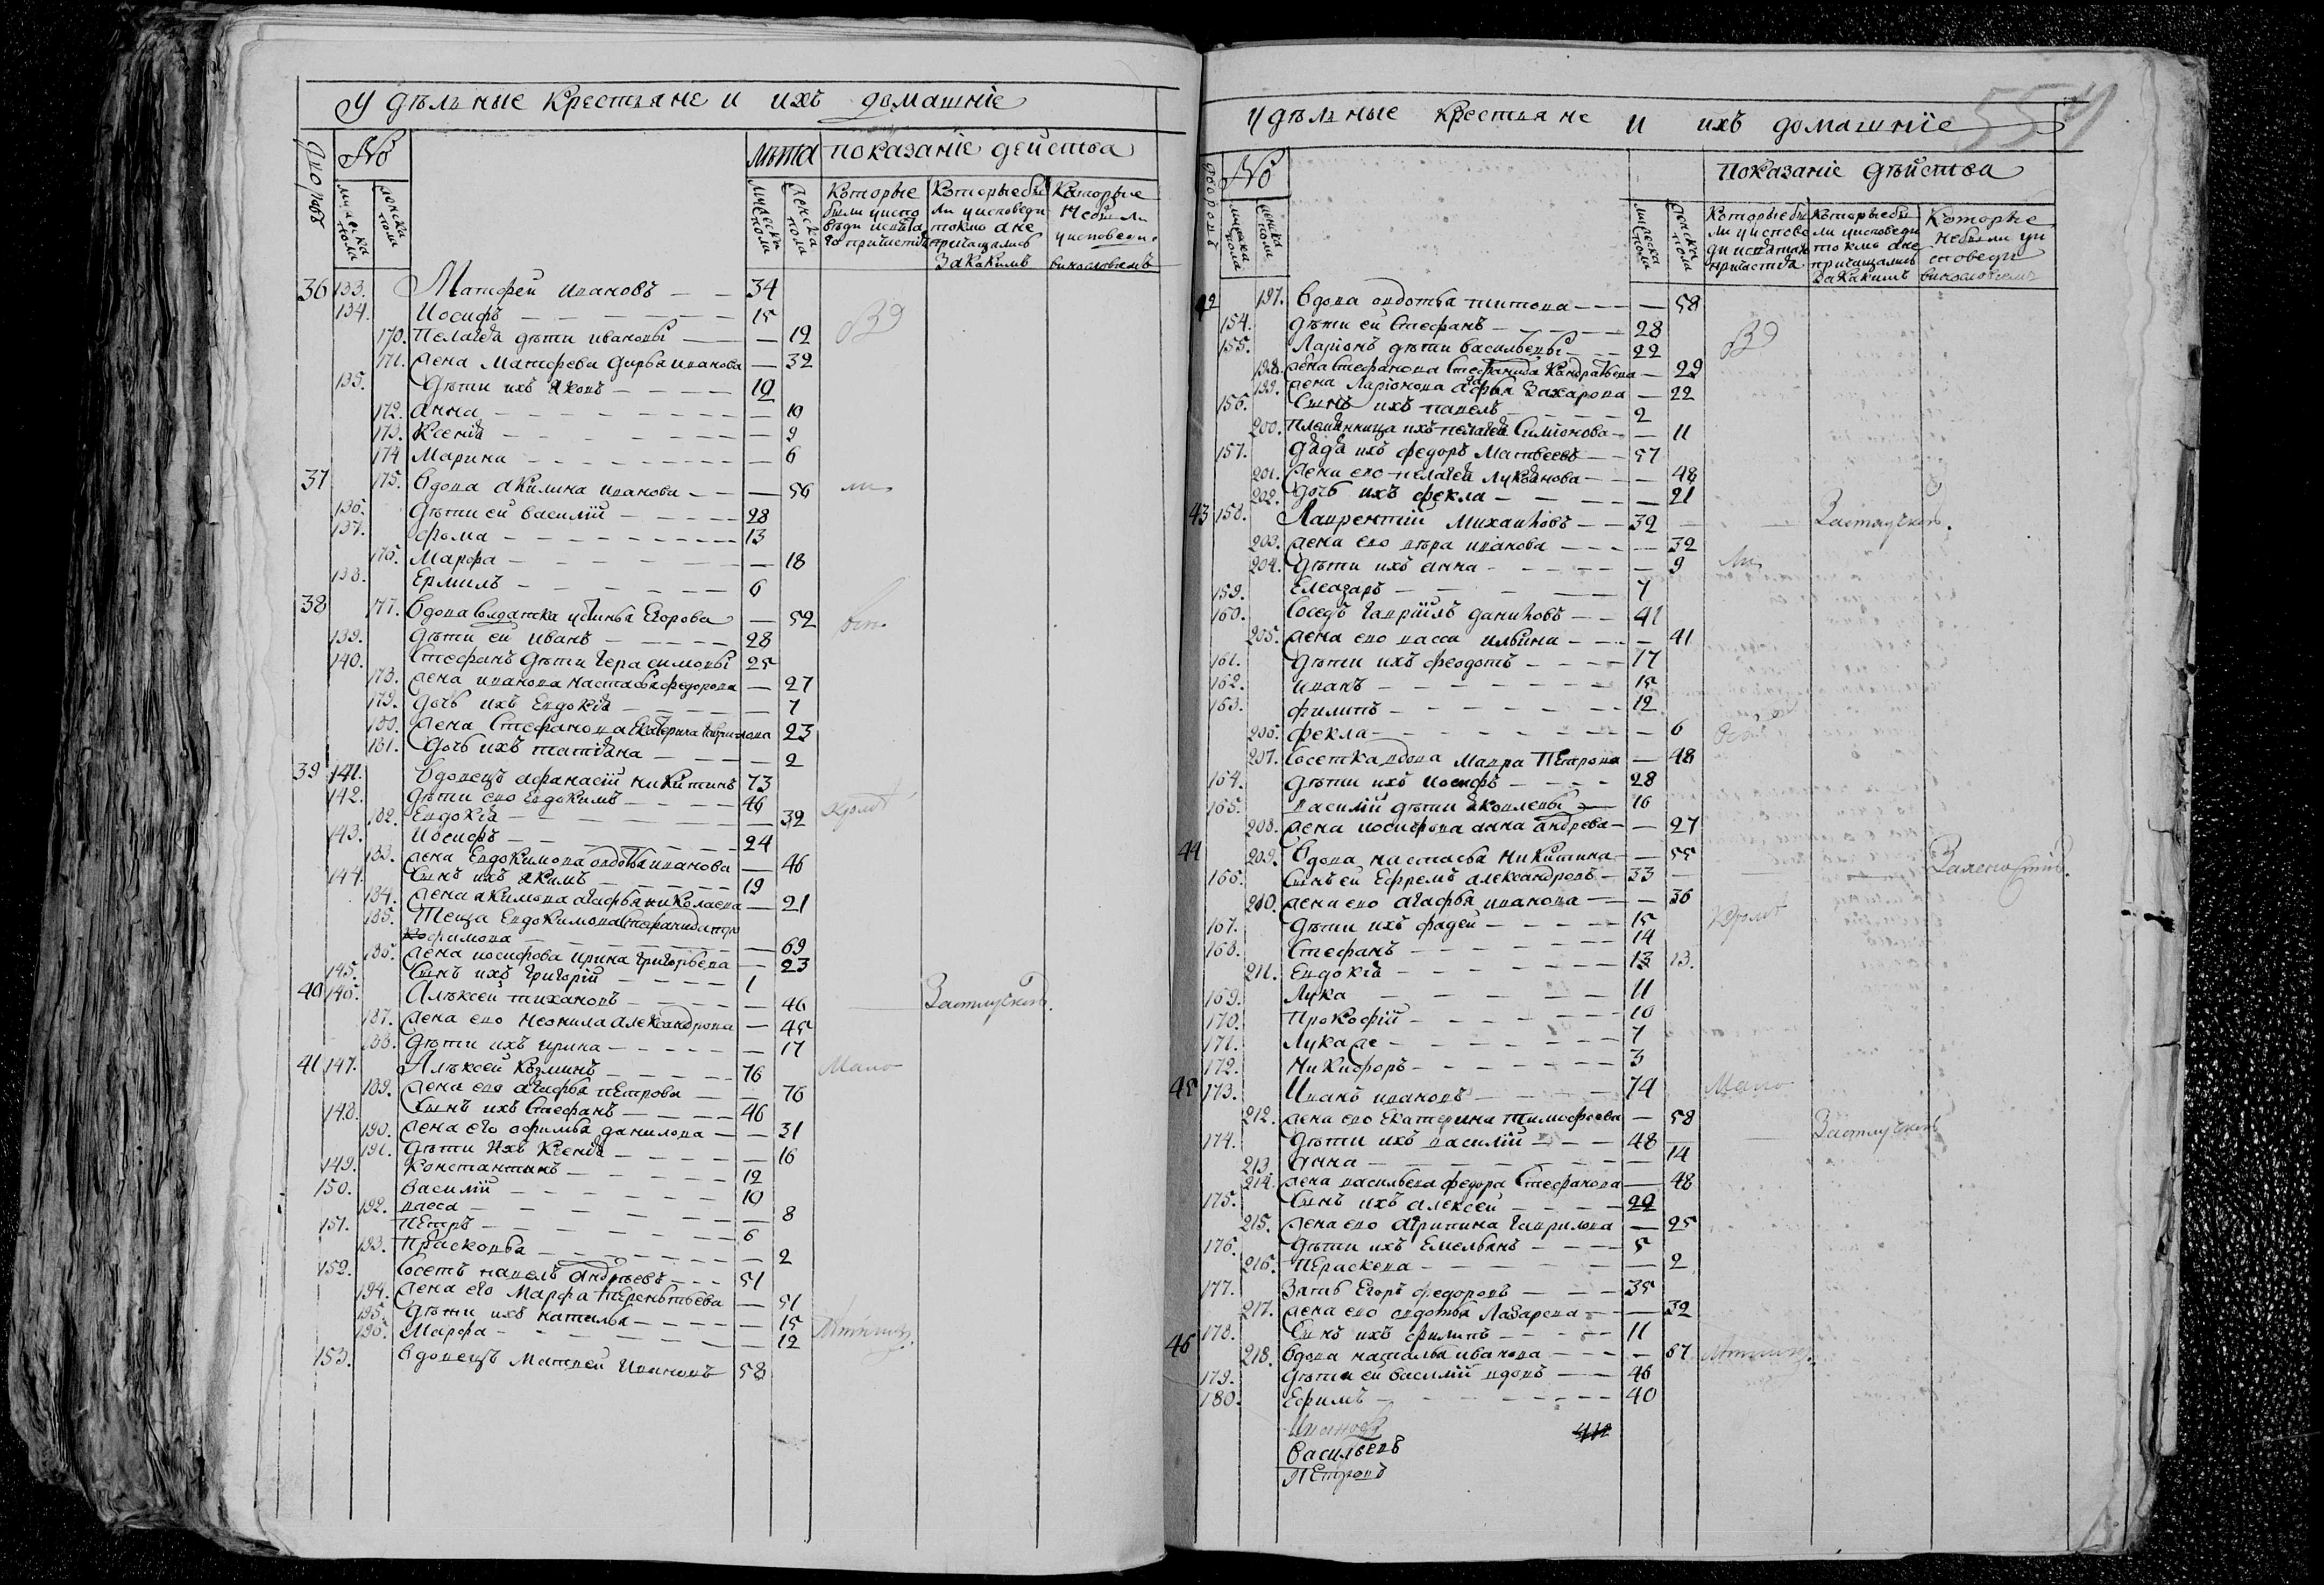 Удѣльные крестьяне и ихъ домашніе
№
Лѣта показаніе действа
Которые Которые бы Которые
36 133. Матфей Ивановъ 34
134. Иосифъ 15
170. Пелагея дѣти Ивановы 12
171. Жена Матфева Дарья Иванова 32
135. Дѣти ихъ Яковъ 12
172. Анна 10
173. Ксенія 9
174 Марина 6
37 175. Вдова Акилина Иванова 56
136. Дѣти ей Василій 28
137. Фома 13
176. Марфа 18
138. Ермилъ 6
38 177. Вдова солдатка Устинья Егорова 52
139. Дѣти ей Иванъ 28
140. Стефанъ дѣти Герасимовы 25
178. Жена Иванова Настасья Федорова 27
179. Дочь ихъ Евдокія 7
180. Жена Стефанова Екатерина Гаврилова 23
181. Дочь ихъ Татіана 2
39 141. Вдовецъ Афанасій Никитинъ 73
142. Дѣти ево Евдокимъ 46
182. Евдокія 32
143. Иосифъ 24
183. Жена Евдокимова Овдотья Иванова 46
144. Сынъ ихъ Якимъ 19
184. Жена Акимова Агафья Николаева 21
185. Теща Евдокимова Стефанида
69
186. Жена Иосифова Ирина Григорьева 23
145. Сынъ ихъ Григорій 1
40 146. Алѣксей Тихановъ 46
187. Жена ево Неонила Александрова 45
188. Дѣти ихъ Ирина 17
41 147. Алѣксей Козминъ 76
189. Жена ево Агафья Петрова 76
148. Сынъ ихъ Стефанъ 46
190. Жена его Офимья Данилова 31
191. Дѣти ихъ Ксенія 16
149. Константинъ 12
150. Василій 10
192. Васса 8
151. Петръ 6
193. Прасковья 2
152. Сосетъ Павелъ Андрѣевъ 51
194. Жена его Марфа Терентьева 51
195. Дѣти ихъ Наталья 15
196. Марфа 12
153. Вдовецъ Матвей Ивановъ 58
Удѣльные крестьяне и ихъ домашніе
№
показаніе дѣйства
42 197. Вдова Овдотья Титова 58
154. Дѣти ей Стефанъ 28
155. Ларіонъ дѣти Васильевы 22
198. Жена Стефанова Стефанида Кандратьева 29
199. Жена Ларіонова Захарова 22
156. Сынъ ихъ Павелъ 2
200. Племянница ихъ Пелагея Симіонова 11
157. Дядя ихъ Федоръ Матвеевъ 57
201. Жена ево Пелагея Лукьянова 48
202. Дочь ихъ Фекла 21
43 158. Лаврентій Михайловъ 32
203. Жена ево Вѣра Иванова 32
204. Дѣти ихъ Анна 9
159. Елеазаръ 7
160. Соседъ Гавріилъ Даниловъ 41
205. Жена ево Васса Ильина 41
161. Дѣти ихъ Феодотъ 17
162. Иванъ 15
163. Филипъ 12
206. Фекла 6
207. Сосетка вдова Мавра Петрова 48
164. Дѣти ихъ Иосифъ 28
165. Василій дѣти Яковлевы 16
208. Жена Иосифова Анна Андрева 27
44 209. Вдова Настасья Никитина 55
166. Сынъ ей Ефремъ Александровъ 33
210. Жена ево Агафья Иванова 36
167. Дѣти ихъ Фадей 15
168. Стефанъ 14
211. Евдокія 13 13.
169. Лука 11
170. Прокофій 10
171. Лука же 7
172. Никифоръ 3
45 173. Иванъ Ивановъ 74
212. Жена ево Екатерина Тимофеева 58
174. Дѣти ихъ Василій 48
213. Анна 14
214. Жена Васильева Федора Стефанова 48
175. Сынъ ихъ Алексей 22
215. Жена ево Агрипина Гаврилова 25
176. Дѣти ихъ Емельянъ 5
216. Пераскева 2
177. Зять Егоръ Федоровъ 35
217. Жена ево Овдотья Лазарева 32
178. Сынъ ихъ Филипъ 11
46 218. Вдова Наталья Иванова 67
179. Дѣти ей Василій вдовъ 46
180. Ефимъ 40
Ивановъ
Васильевъ
Петровъ